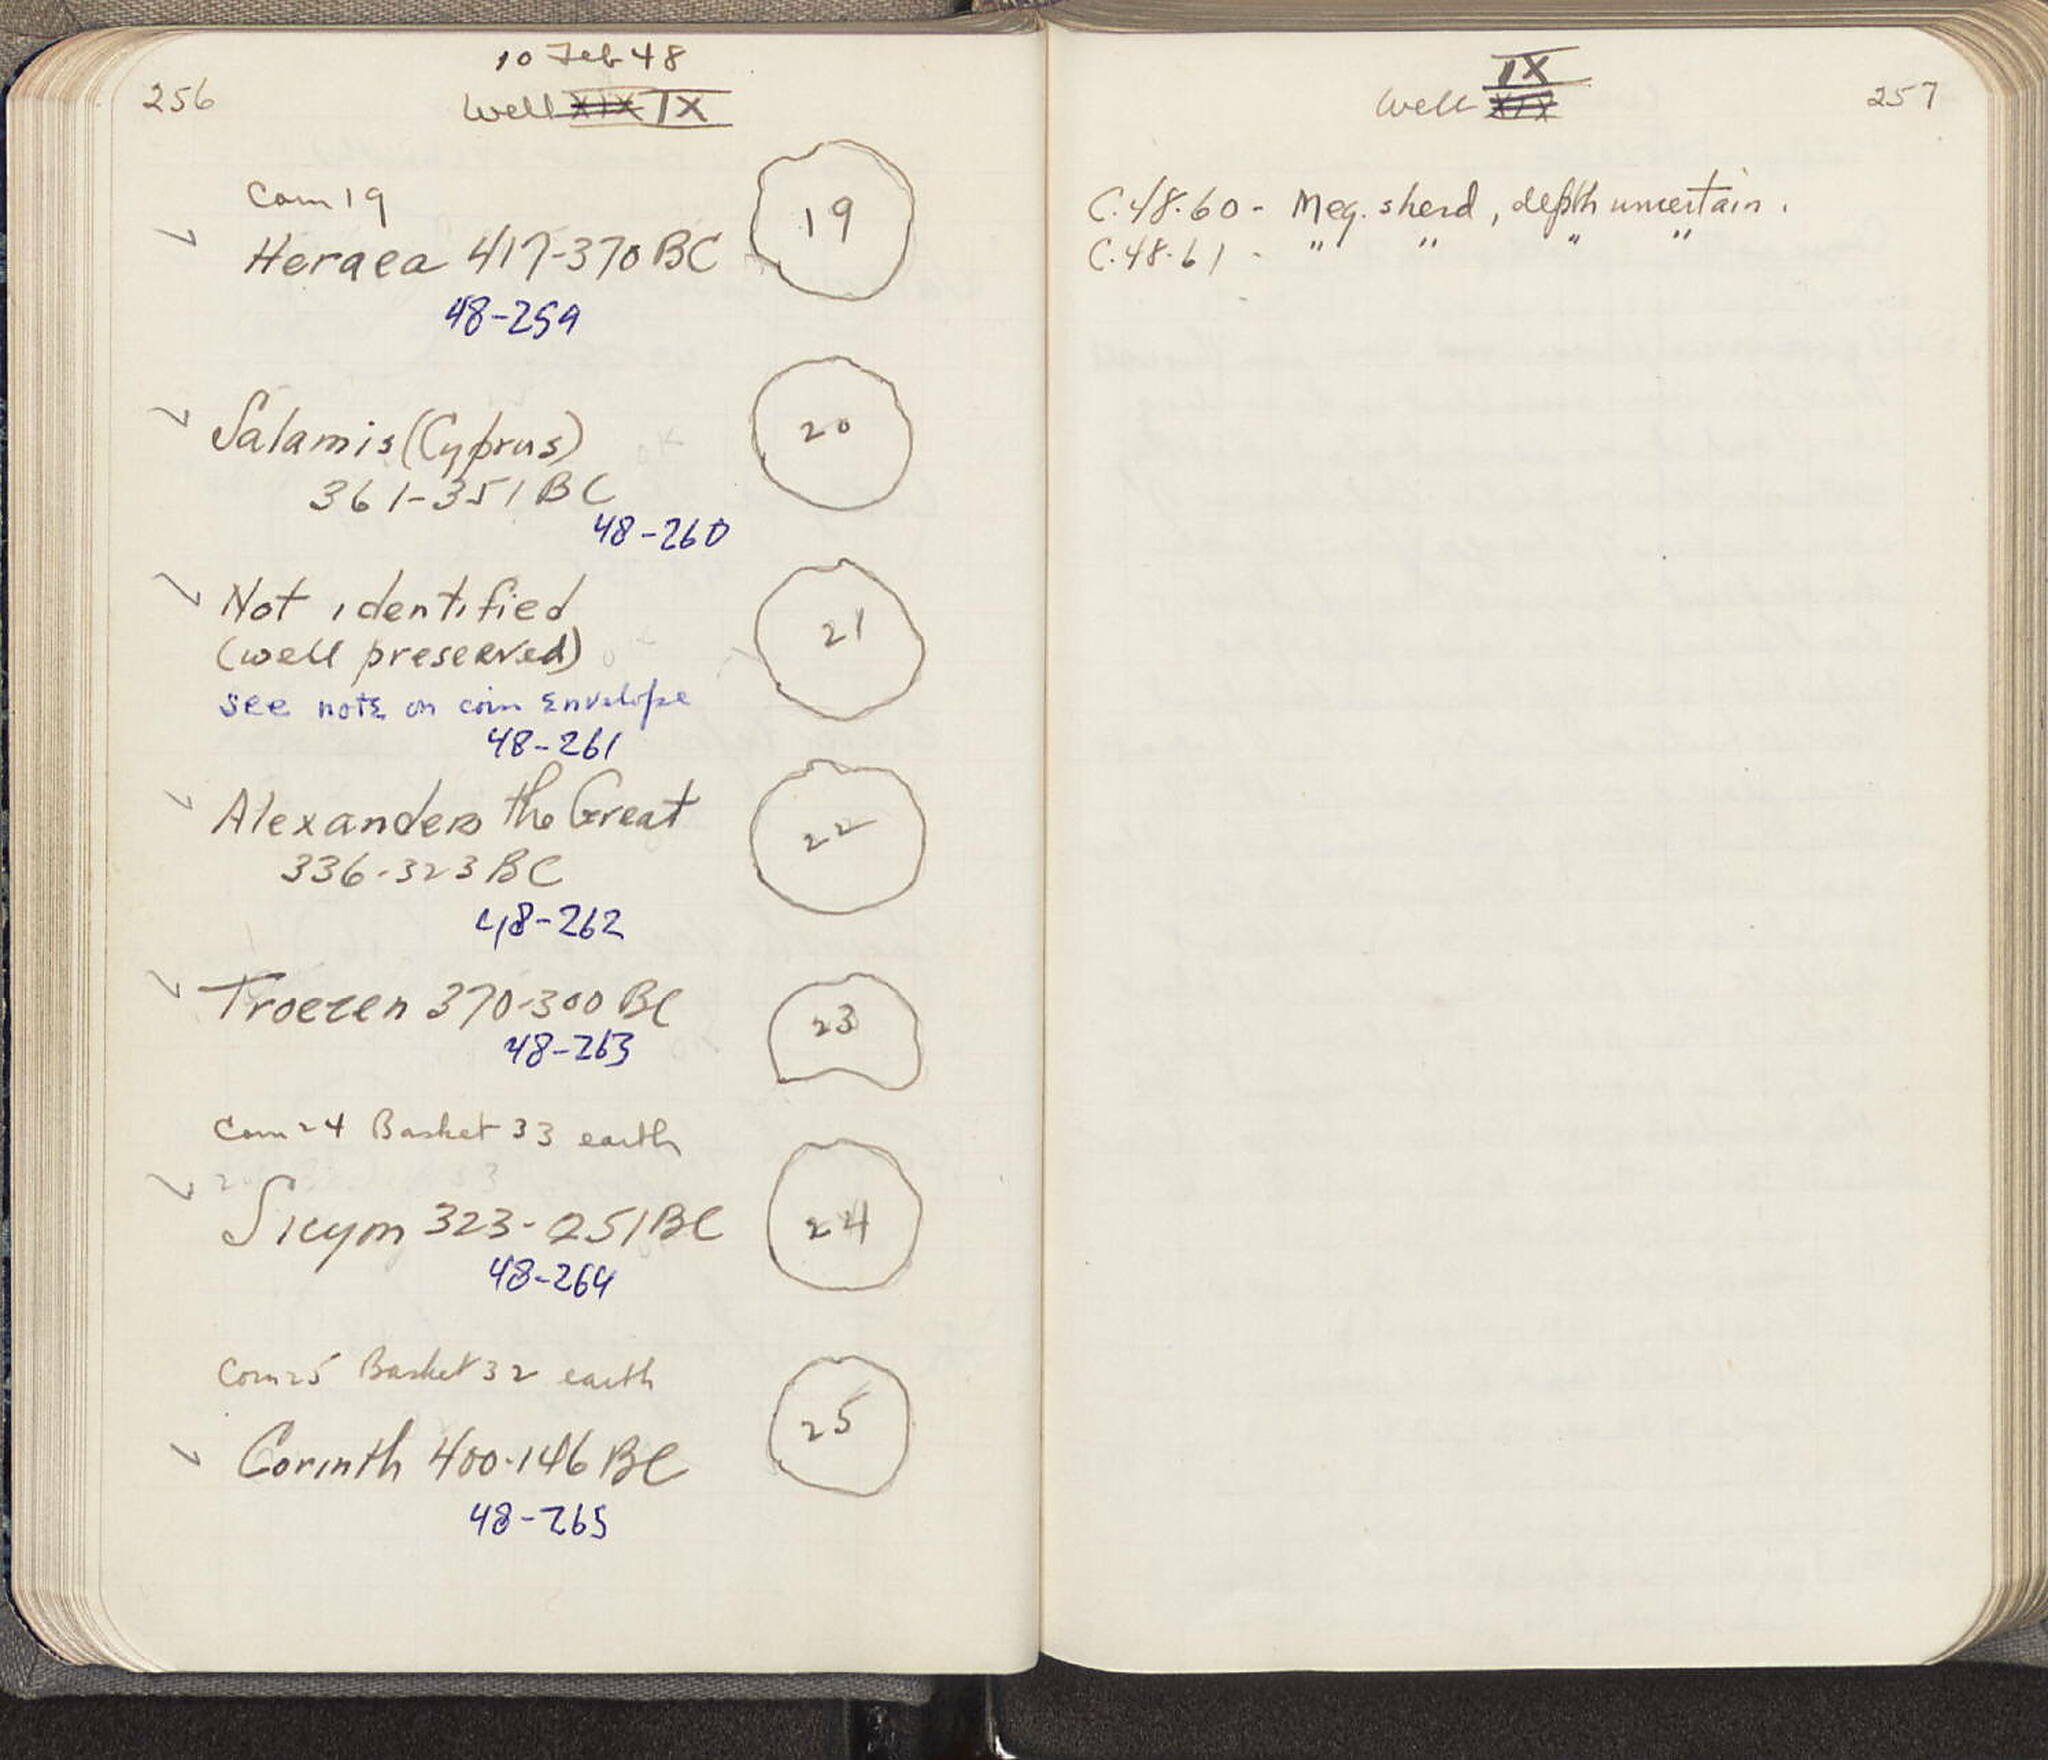 256
10 Feb 48
Well XIX IX
Coin 19
19
Heraea 417-370 BC
48-259
20
Salamis (Cyprus)
361-351 BC
48-260
21
Not identified
(well preserved)
see note on coin envelope
48-261
22
Alexander the Great
336-323 BC
48-262
23
Troezen 370-300 BC
48-263
Coin 24 Basket 33 earth
24
Sicyon 323-251 BC
48-264
Coin 25 Basket 32 earth
25
Corinth 400-146 BC
48-265
IX
Well XIX
257
C.48.60 - Meg. sherd, depth uncertain.
C.48.61 - " " " "